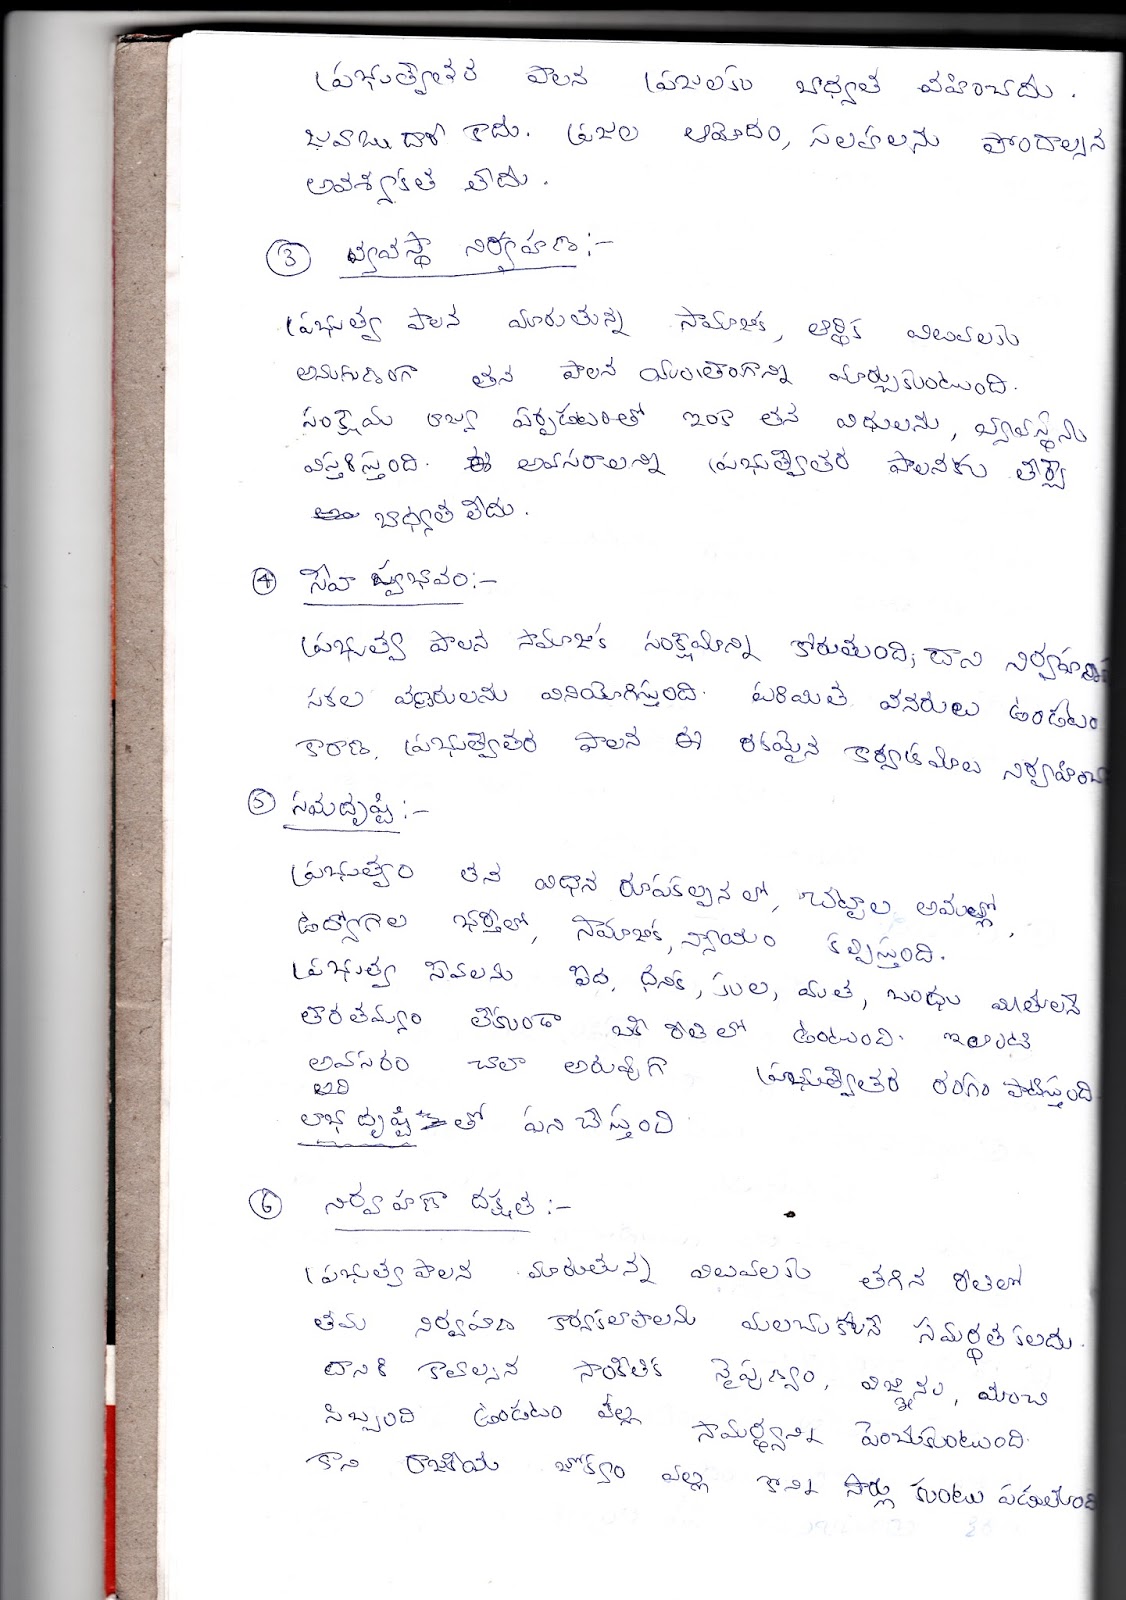 ప్రభుత్వేతర పాలన ప్రజలకు బాధ్యత వహించదు.
జవాబుదారీ కాదు. ప్రజల ఆమోదం, సలహాలను పొందాల్సిన
అవశ్యకత లేదు.
③ వ్యవస్థా నిర్వహణ:-
ప్రభుత్వ పాలన మారుతున్న సామాజిక, ఆర్థిక విలువలకు
అనుగుణంగా తన పాలన యంత్రాంగాన్ని మార్చుకుంటుంది.
సంక్షేమ రాజ్యం ఏర్పడటంతో ఇంకా తన విధులను, వ్యవస్థను
విస్తరిస్తుంది. ఈ అవసరాలన్ని ప్రభుత్వేతర పాలనకు తీర్చే
బాధ్యత లేదు.
④ సేవా స్వభావం:-
ప్రభుత్వ పాలన సామాజిక సంక్షేమాన్ని కోరుతుంది; దాని నిర్వహణకు
సకల వనరులను వినియోగిస్తుంది. పరిమిత వనరులు ఉండటం
కారణ, ప్రభుత్వేతర పాలన ఈ రకమైన కార్యక్రమాలు నిర్వహించ
⑤ సమదృష్టి:-
ప్రభుత్వం తన విధాన రూపకల్పనలో, చట్టాల అమల్లో,
ఉద్యోగాల భర్తీలో, సామాజిక న్యాయం కల్పిస్తుంది.
ప్రభుత్వ సేవలను పేద, ధనిక, కుల, మత, బంధు మిత్రులనే
తారతమ్యం లేకుండా ఒకే రీతిలో ఉంటుంది. ఇలాంటి
అవసరం చాలా అరుదుగా ప్రభుత్వేతర రంగం పాటిస్తుంది.
అది
లాభ దృష్టితో పని చేస్తుంది
⑥ నిర్వహణా దక్షత:-
ప్రభుత్వ పాలన మారుతున్న విలువలకు తగిన రీతిలో
తమ నిర్వహణ కార్యకలాపాలను మలచుకోనే సమర్థత కలదు.
దానికి కావాల్సిన సాంకేతిక నైపుణ్యం, విజ్ఞానం, మంచి
సిబ్బంది ఉండటం వల్ల సామర్థ్యాన్ని పెంచుకుంటుంది.
కాని రాజకీయ జోక్యం వల్ల కొన్ని సార్లు కుంటు పడుతుంది